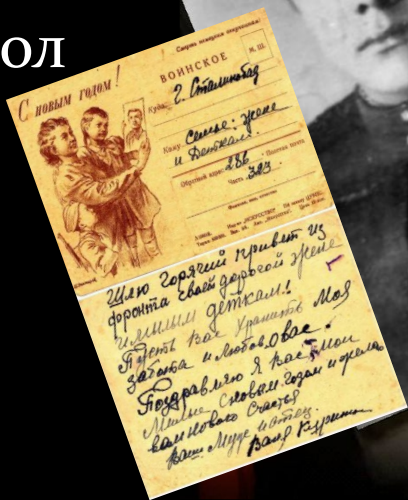 ОЛ
С НОВЫМ ГОДОМ!
ВОИНСКОЕ
М. Ш.
Куда:
г. Сталинобад
Кому
Семье: жене
и Деткам.
Обратный адрес: 286 Полевая почта
Часть 383
Шлю горячий привет из
фронта своей дорогой жене
и милым деткам!
Пусть Вас хранит Моя
забота и любовь о вас!
Поздравляю я вас мои
Милые с новым годом и желаю
вам нового счастья
Ваш Муж и отец.
Валя